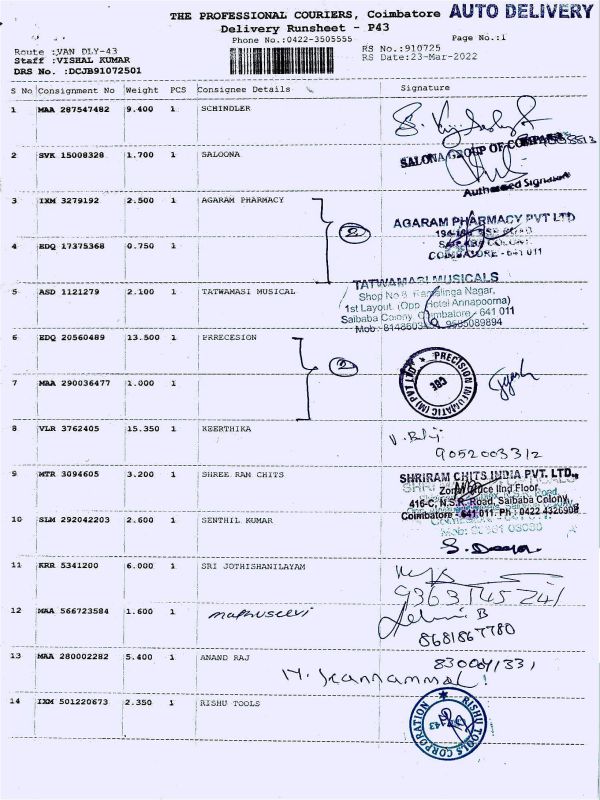 THE PROFESSIONAL COURIERS, Coimbatore AUTO DELIVERY
Delivery Runsheet - P43
Phone No.:0422-3505555 Page No.:1
Route :VAN DLY-43 RS No.:910725
Staff :VISHAL KUMAR RS Date:23-Mar-2022
DRS No. :DCJB91072501
S No Consignment No Weight PCS Consignee Details Signature
1 MAA 287547482 9.400 1 SCHINDLER
2 SVK 15008328 1.700 1 SALOONA
SALONA GROUP OF
Authorised Signator
3 IXM 3279192 2.500 1 AGARAM PHARMACY
2
AGARAM PHARMACY PVT LTD
4 EDQ 17375368 0.750 1
COIMBATORE - 641 011
TATWAMASI MUSICALS
5 ASD 1121279 2.100 1 TATWAMASI MUSICAL
Shop No 6, Ramalinga Nagar,
1st Layout, (Opp. Hotel Annapoorna)
Saibaba Colony, Coimbatore - 641 011
Mob: 9585089894
6 EDQ 20560489 13.500 1 PRRECESION
2
PRECISION INFOMATIC (M) PVT LTD
CBE
7 MAA 290036477 1.000 1
8 VLR 3762405 15.350 1 KEERTHIKA
9052003312
9 MTR 3094605 3.200 1 SHREE RAM CHITS
SHRIRAM CHITS INDIA PVT. LTD.,
Zonal Office IInd Floor,
416-C, N.S.R. Road, Saibaba Colony,
Coimbatore - 641 011. Ph : 0422 4326908
10 SLM 292042203 2.600 1 SENTHIL KUMAR
11 KRR 5341200 6.000 1 SRI JOTHISHANILAYAM
9363145241
12 MAA 566723584 1.600 1
8681867780
13 MAA 280002282 5.400 1 ANAND RAJ
14 IXM 501220673 2.350 1 RISHU TOOLS
RISHU TOOLS CORPORATION